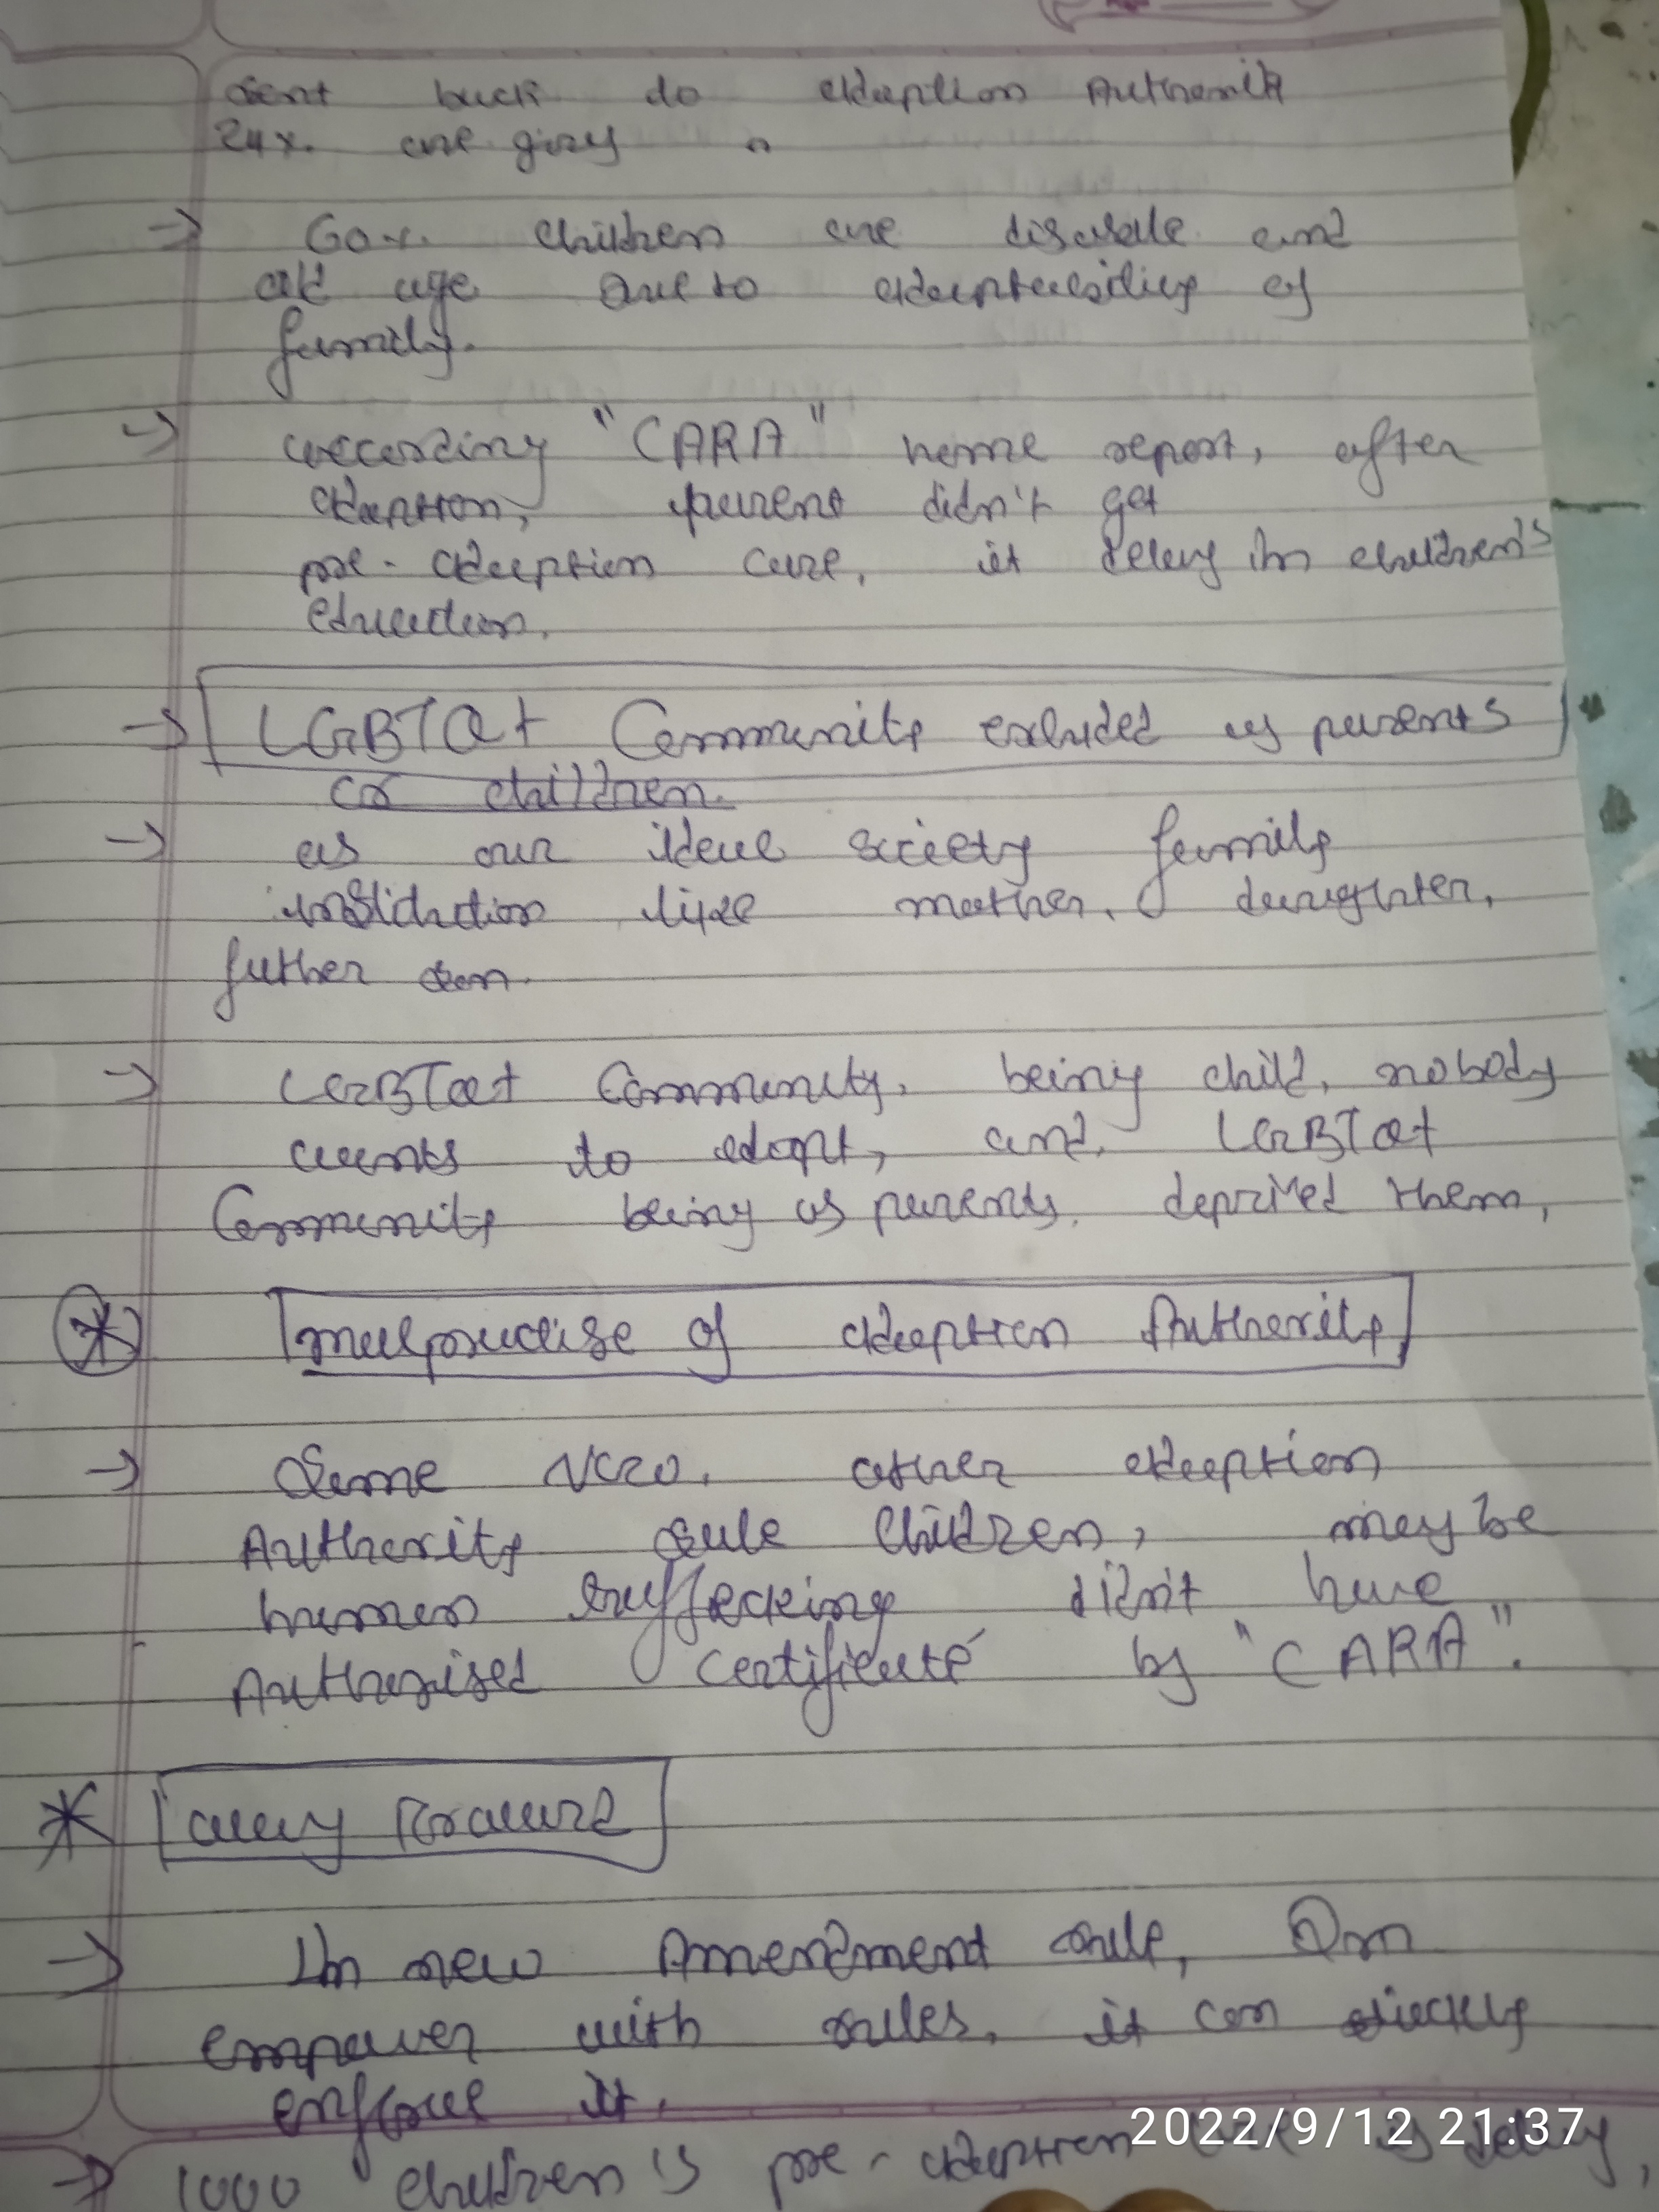 sent back to adoption Authority
24%. are girls
→ 60%. children are disable and
old age due to adaptability of
family.
→ according "CARA" home report, after
adoption, parent didn't get
pre-adoption care, it delay in children's
education.
→ LGBTQ+ Community excluded as parents
or children.
→ as our ideal society family
institution like mother, daughter,
father son.
→ LGBTQ+ Community. being child, nobody
wants to adopt, and LGBTQ+
Community being as parents, deprived them,
* malpractise of adoption Authority
→ Some NGO. other adoption
Authority sale Children, may be
human traffecking didn't have
Authorised Certificate by "CARA".
* way Forward
→ In new Amendment rule, Dm
empower with rules, it can quickly
enforce it.
2022/9/12 21:37
→ 1000 children's pre-adoption delay,